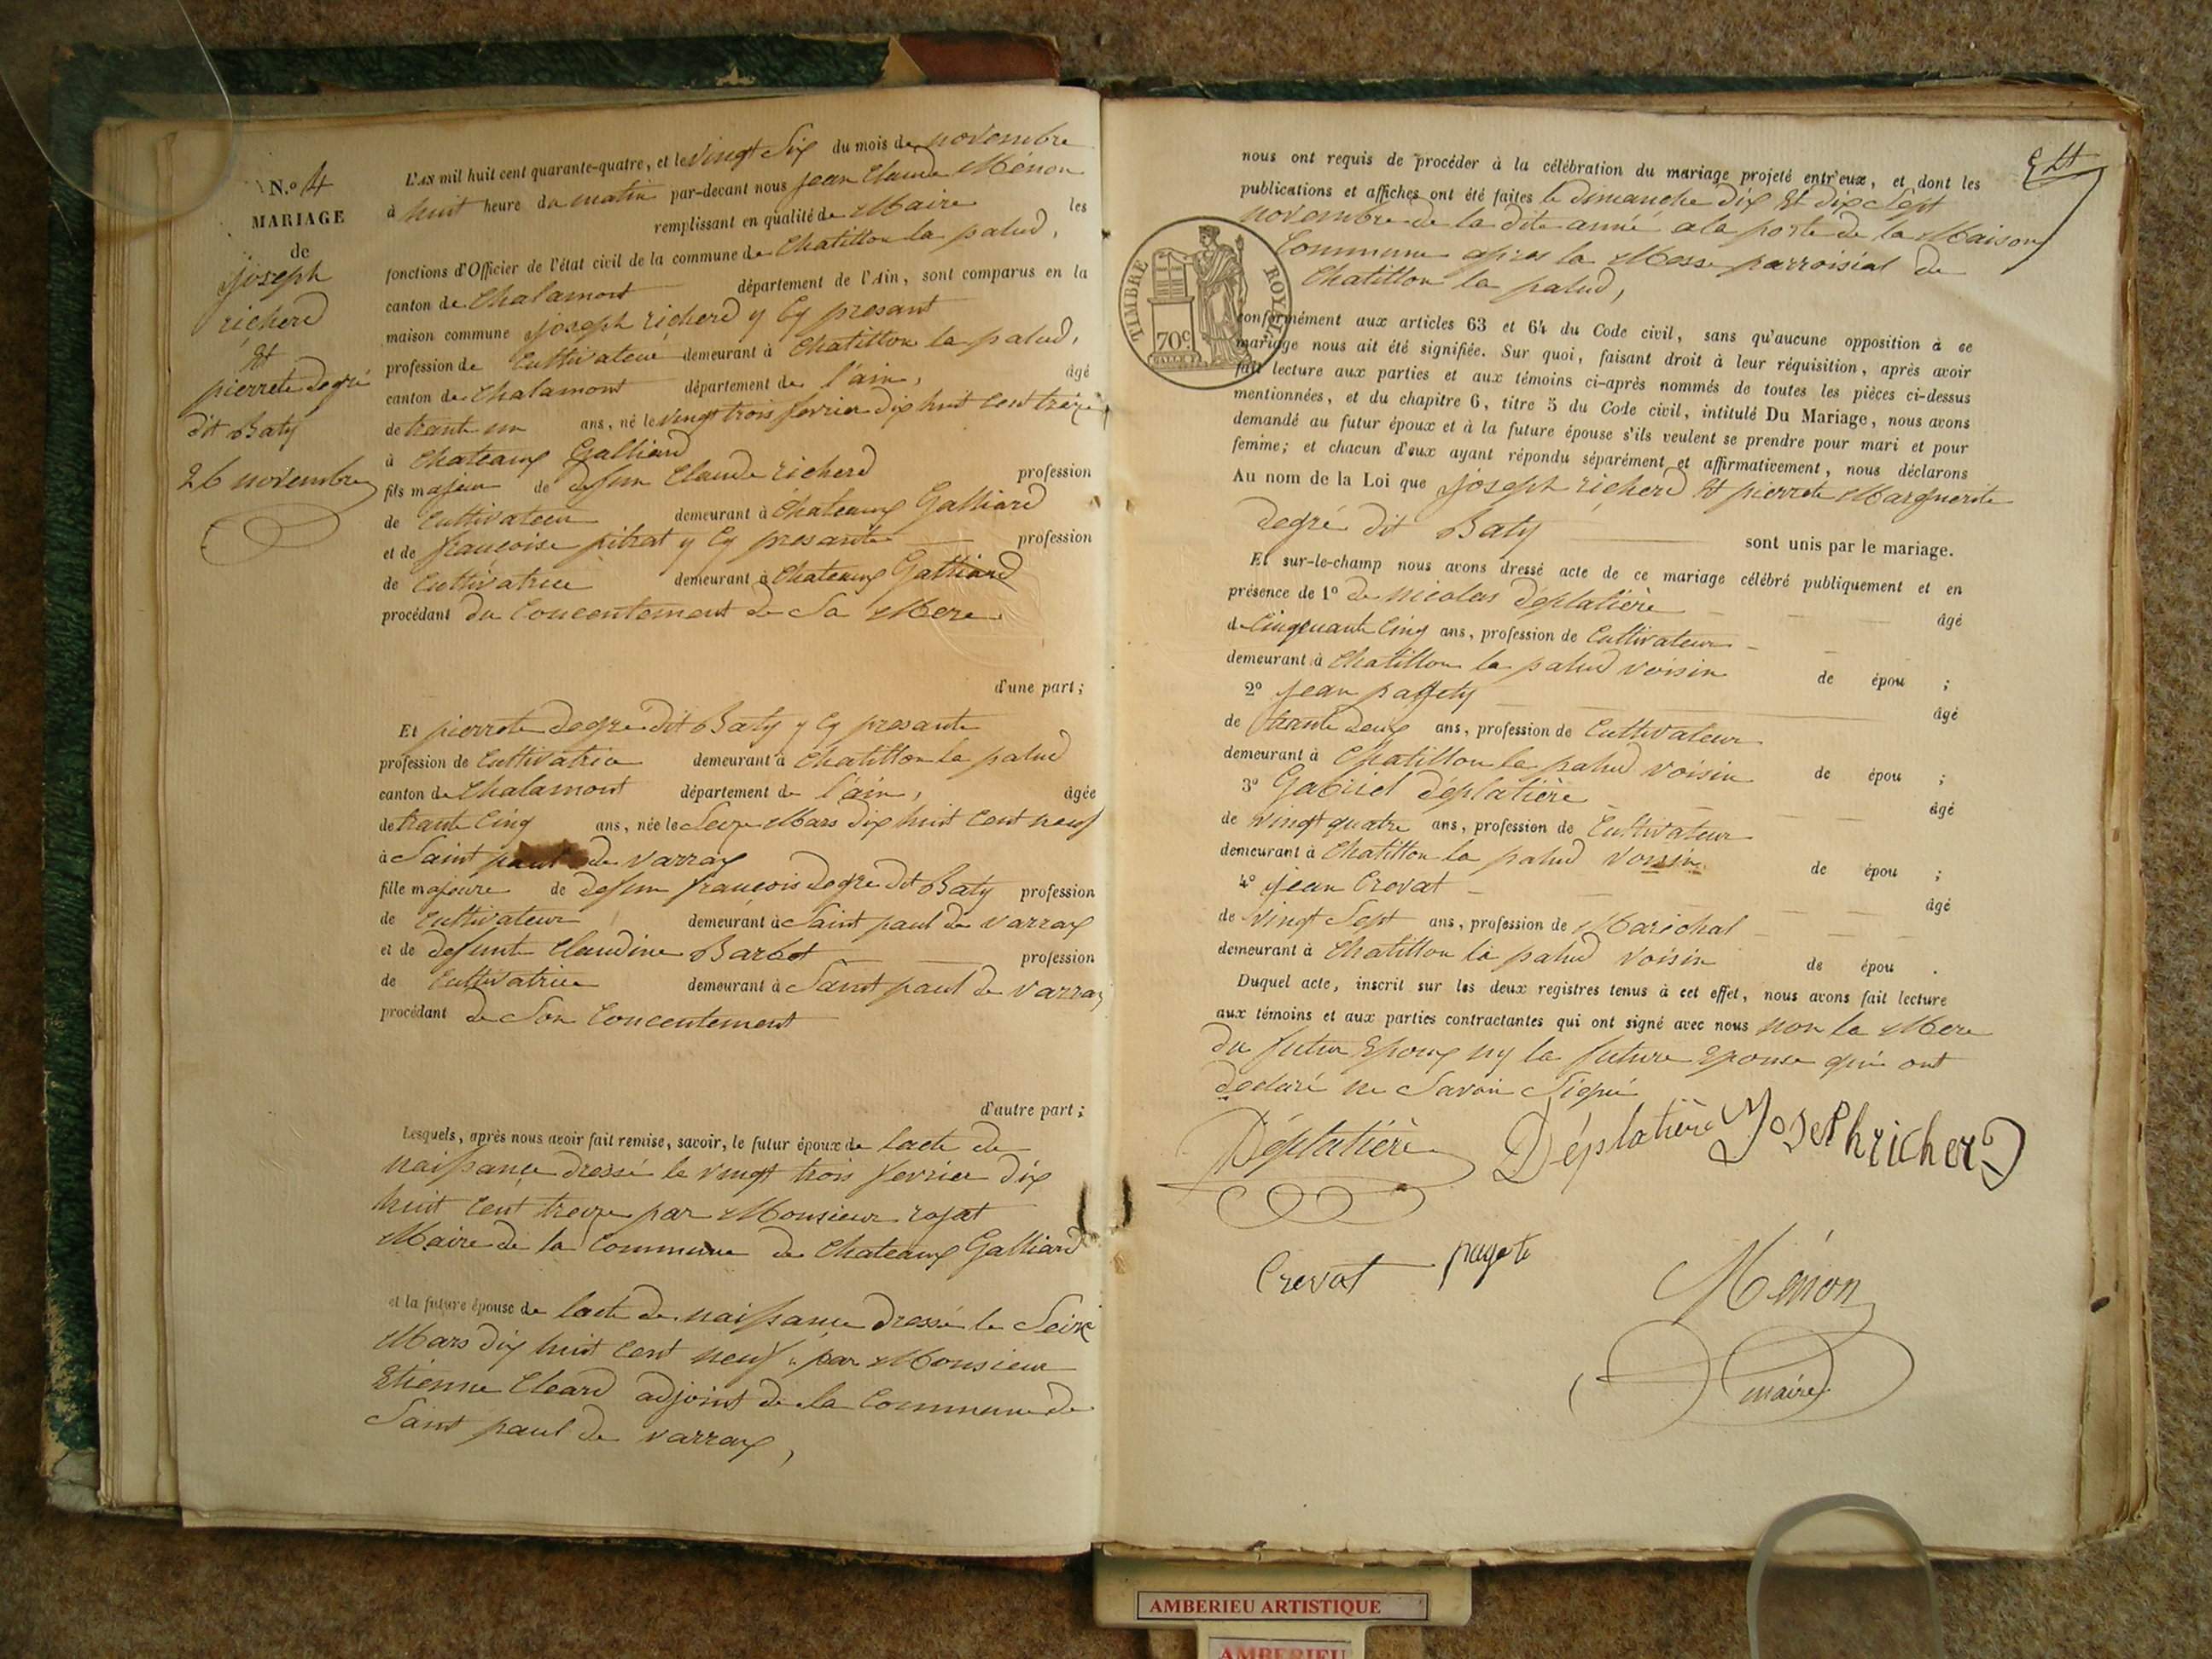 N.o 4
MARIAGE
de
joseph
richerd
Et
pierrete degré
dit Baty
26 novembre
L'AN mil huit cent quarante-quatre, et le vingt Six du mois de novembre
à huit heure du matin par-devant nous jean Claude Ménon
remplissant en qualité de Maire les
fonctions d'Officier de l'état civil de la commune de Chatillon la palud,
canton de Chalamont département de l'Ain, sont comparus en la
maison commune joseph richerd y Cy presant
profession de Cultivateur demeurant à Chatillon la palud,
canton de Chalamont département de l'ain, âgé
de trante un ans, né le vingt trois fevrier dix huit Cent treize
à Chateaux Galliard
fils majeur de defun Claude richerd profession
de Cultivateur demeurant à Chateaux Galliard
et de françoise pitrat y Cy presante profession
de Cultivatrice demeurant à Chateaux Galliard
procédant du Concentement de Sa Mere
d'une part;
Et pierrete degre dit Baty y Cy presante
profession de Cultivatrice demeurant à Chatillon la palud
canton de Chalamont département de l'ain, âgée
de trante Cinq ans, née le Seize Mars dix huit Cent neuf
à Saint paul de varrax
fille majeure de defun françois degre dit Baty profession
de Cultivateur demeurant à Saint paul de varrax
et de defunte Claudine Barbet profession
de Cultivatrice demeurant à Saint paul de varrax
procédant de Son Concentement
d'autre part;
Lesquels, après nous avoir fait remise, savoir, le futur époux de lacte de
naissance dressé le vingt trois fevrier dix
huit Cent treize par Monsieur rojat
Maire de la Commune de Chateaux Galliard
et la future épouse de lacte de naissance dressé le Seize
Mars dix huit Cent neuf par Monsieur
Etienne Cleard adjoint de la Commune de
Saint paul de varrax,
nous ont requis de procéder à la célébration du mariage projeté entr'eux, et dont les
publications et affiches ont été faites le dimanche dix Et dix Sept
novembre de la dite année a la porte de la Maison
Commune apres la Messe parroisial de
Chatillon la palud,
TIMBRE ROYAL
70c.
conformément aux articles 63 et 64 du Code civil, sans qu'aucune opposition à ce
mariage nous ait été signifiée. Sur quoi, faisant droit à leur réquisition, après avoir
fait lecture aux parties et aux témoins ci-après nommés de toutes les pièces ci-dessus
mentionnées, et du chapitre 6, titre 5 du Code civil, intitulé Du Mariage, nous avons
demandé au futur époux et à la future épouse s'ils veulent se prendre pour mari et pour
femme; et chacun d'eux ayant répondu séparément et affirmativement, nous déclarons
Au nom de la Loi que joseph richerd Et pierrete Marguerite
degré dit Baty sont unis par le mariage.
Et sur-le-champ nous avons dressé acte de ce mariage célébré publiquement et en
présence de 1o de nicolas deplatière âgé
de Cinquante Cinq ans, profession de Cultivateur
demeurant à Chatillon la palud voisin de épou ;
2o jean pajety âgé
de trante deux ans, profession de Cultivateur
demeurant à Chatillon la palud voisin de épou ;
3o Gabriel déplatière âgé
de vingt quatre ans, profession de Cultivateur
demeurant à Chatillon la palud voisin de épou ;
4o jean Crevat âgé
de vingt Sept ans, profession de Maréchal
demeurant à Chatillon la palud voisin de épou .
Duquel acte, inscrit sur les deux registres tenus à cet effet, nous avons fait lecture
aux témoins et aux parties contractantes qui ont signé avec nous non la Mere
du futur Epoux ny la future Epouse qui ont
declaré ne Savoir Signé
Déplatière Déplatière Joseph richerd
Crevat pagete
Ménon
maire
AMBERIEU ARTISTIQUE
AMBERIEU